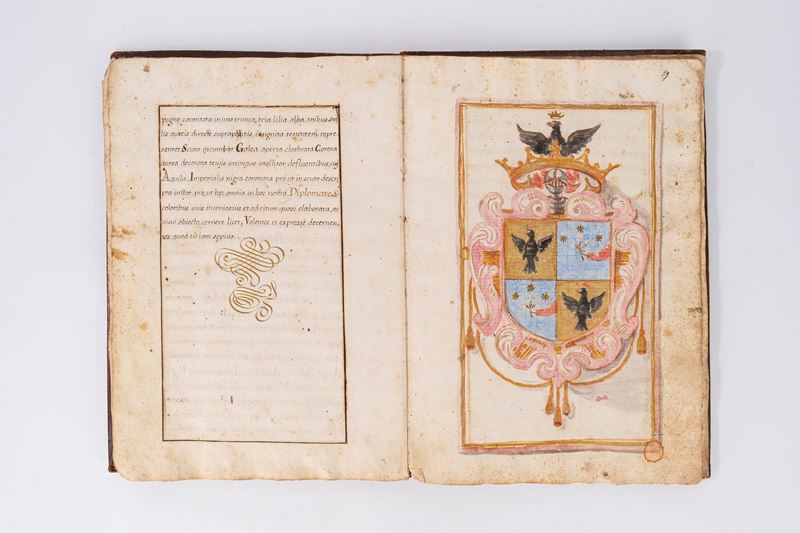 pugno contracta in uno trunco, tria lilia alba, tribus stel
lis aureis directè suprapositis, insignita tenentem repræ
sentet Scuto incumbat Galea aperta clathrata Corona
aurea decorata tenijs utrinque molliter defluentibus, cui
Aquila Imperialis nigra coronata prout in scuto descri
pta instat, prout hęc omnia in hoc nostro Diplomate, &
coloribus suis
visui obiecta cernere licet, Volentes, et expresse decernen
tes, quod tu jam sępius
9